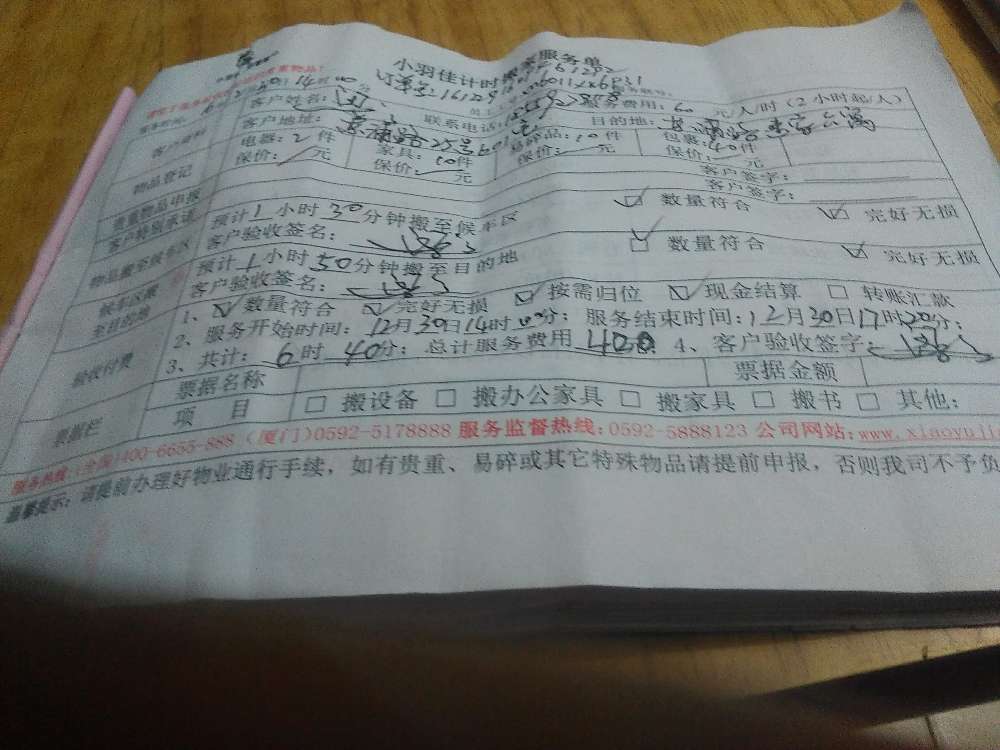 小羽佳计时搬家服务单
客户姓名:
联系电话:
服务费用: 60 元/人/时(2小时起/人)
客户资料
客户地址:
目的地:
物品登记
电器: 2 件
家具: 10 件
10 件
包裹: 40 件
保价: 元
保价: 元
保价: 元
保价: 元
贵重物品申报
客户签字:
客户特别承诺
客户签字:
物品搬至候车区
预计 1 小时 30 分钟搬至候车区
数量符合
完好无损
客户验收签名:
候车区搬至目的地
预计 1 小时 50 分钟搬至目的地
数量符合
完好无损
客户验收签名:
验收付费
1、 数量符合 完好无损 按需归位 现金结算 转账汇款
2、服务开始时间: 12月30日14时00分; 服务结束时间: 12月30日17时20分;
3、共计: 6 时 40分; 总计服务费用 400 4、客户验收签字:
票据栏
票据名称
票据金额
项 目
搬设备 搬办公家具 搬家具 搬书 其他:
服务热线:(全国)400-6655-888 (厦门)0592-5178888 服务监督热线:0592-5888123 公司网站:www.xiaoyuji
温馨提示: 请提前办理好物业通行手续,如有贵重、易碎或其它特殊物品请提前申报,否则我司不予负